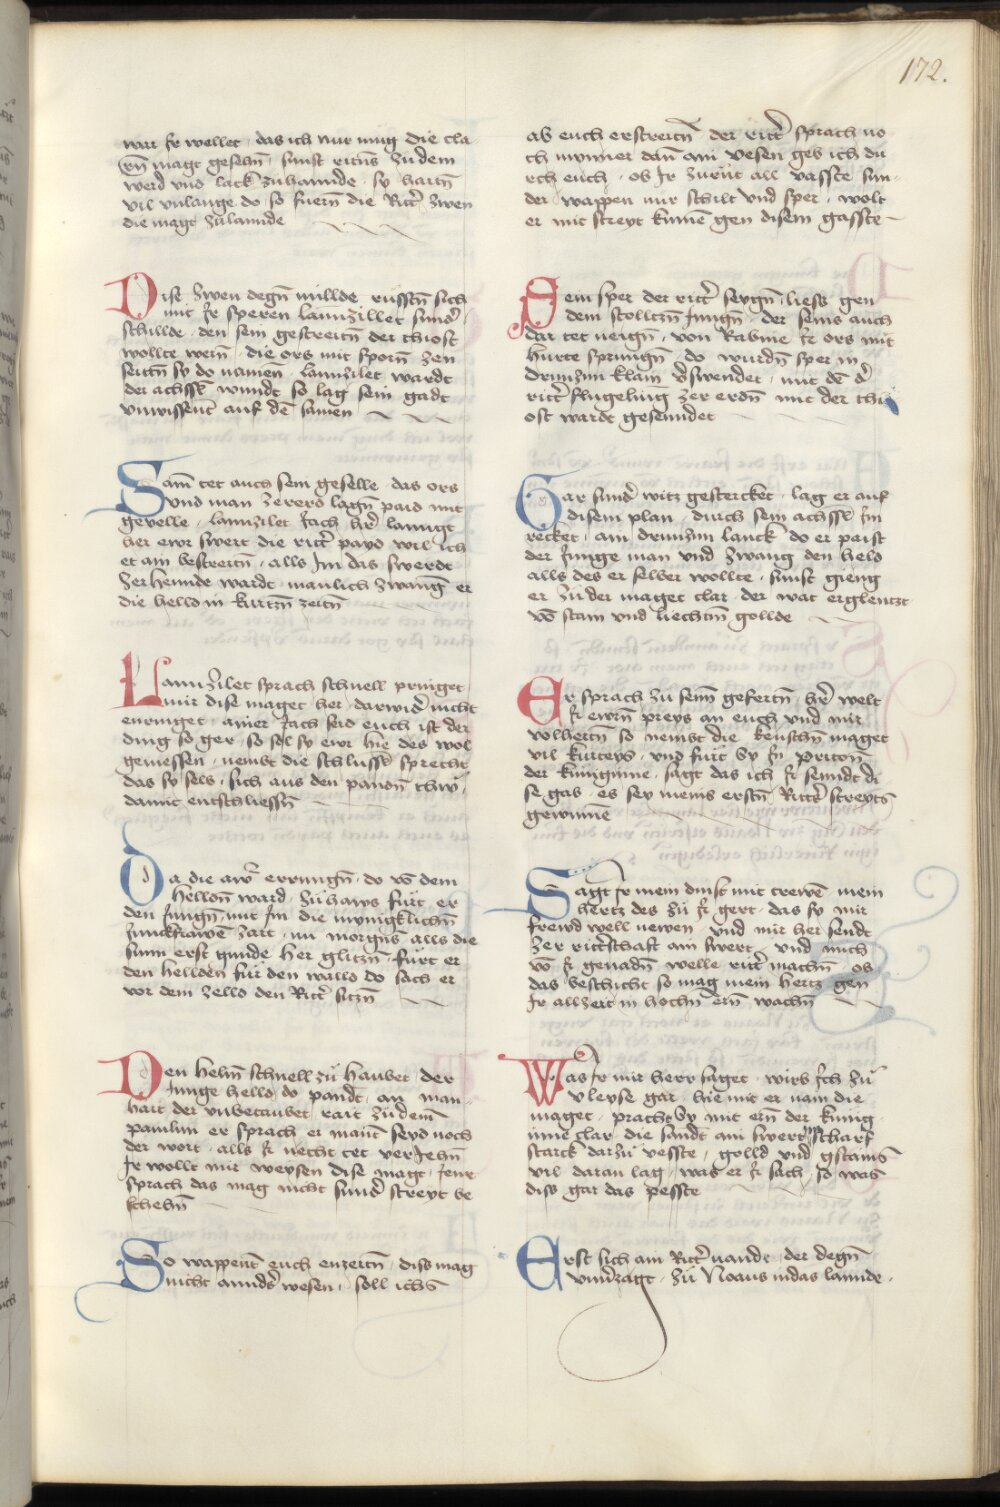 172.
wari Ir wellet · das ich nur mug die cla
rn̄ magt gesehn̄ · sunst ritnʒ zu dem
werd vnd lack zuhannde · sy hartn̄
vil vnlange do so fuern̄ die Ritt̄ zwen
die magt zulannde
Dise zwen degn̄ millde russtn̄ sich
mit Ir speren lannzillet sund̄
schillde · den sein gestreitn̄ der thiost
wollte wern̄ · die ors mit sporn̄ zen
seitn̄ sy do namen · lannzilet wardt
der achssl̄ wundt so lag sein gadt
vnwissent auf dē samen
Sam̄ tet auch sein geselle das ors
vnd man zererd lagn̄ paid mit
gevelle · lannzilet Jach hr̄e lannge
her ewr swert die ritt̄ payd wil ich
et am bestreitn̄ · alls Im das swerdt
zerhennde wardt · manlich zwang er
die helld in kurtzn̄ zeitn̄
Lannzilet sprach schnell pringet
mir dise maget her · darwid̄ nicht
enringet · ainer Jach seid euch ist der
ding so ger · so sol sy ewr hie des wol
geniessen · nembt die schlussl̄ sprecht
das sy sels · sich aus den panden thw ·
damit entschliessn̄
Da die aw̄ errungn̄ · do vō dem
helldn̄ ward · zu haws furt er
den Jungn̄ · mit Im die mynigklichn̄
Junckfrawē zart · nu morgnʒ alls die
sunn erst gunde her glitzn̄ · furt er
den hellden fur den walld do sach er
vor dem zelld den Ritt̄ sitzn̄
Den helm̄ schnell zu haubet · der
Junge helld do pandt · an man
hait der vnbetaubet rait zu dem̄
pawlun er sprach er mant seyd noch
der wort · alls Ir necht tet verJehn̄
Ir wollt mir weysen dise magt · Jene
sprach das mag nicht sund̄ streyt be
schehn̄
So wappent euch enzeitn̄ · diss mag
nicht annd̄s wesen · soll ichs
ab euch erstreitn̄ der ritt̄ sprach no
ch mynner dan̄ ain vesen geb ich du
rch euch · ob Ir zuent all vasste sun
der wappen nur schilt vnd sper · wolt
er mit streyt kumē gen disem gasste
Sein sper der ritt̄ seygn̄ · liess gen
dem stolltzn̄ Jungn̄ · der sems auch
dar tet neign̄ · von Rabine Ir ors mit
hurte sprungn̄ do wurdn̄ sper in
drunzun klain v̄swendet · mit dē d̄
ritt̄ flugeling zer erdn̄ mit der thi
ost wardt gesenndet
Gar sund̄ witz gestercket · lag er auf
disem plan · durch sein achssl̄ Im
recket · ain drunzun lanck do er paist
der Junge man vnd zwang den held
alls des er selber wollte · sunst gieng
er zu der maget clar · der wat erglentzt
vō stain vnd liechtm̄ gollde
Er sprach zu sein̄ gefertn̄ · hr̄e welt
Ir ewrn̄ preys an euch vnd mir
volhertn̄ so nembt die keuschn̄ maget
vil kurteys · vnd furt sy In Pritōn̄
der kuniginne · sagt das ich Ir senndt di
se gab · es sey meins erstn̄ Ritt̄ streyts
gewinnē
Sagt Ir mein dinst mit trewē · mein
hertz des zu Ir gert · das sy mir
frewd well newen · vnd mir her sendt
zer rittschaft ain swert · vnd mich
vō Ir genadn̄ welle ritt̄ machn̄ · ob
das beschicht so mag mein hertz gen
Ir allzeit in hochn̄ ern̄ wachn̄
Was Ir mir herr saget · wirb Ich zu
vleyse gar · hie mit er nam die
maget · pracht sy mit ern̄ der kunig
inne clar · die sandt ain swert scharf
starck darzu vesste · golld vnd gstains
vil daran lag · was er Ir sach · so was
diss gar das pesste
Erst sich am Ritt̄ nandt · der degn̄
vnuerzagt · zu Noaus in das lannde ·